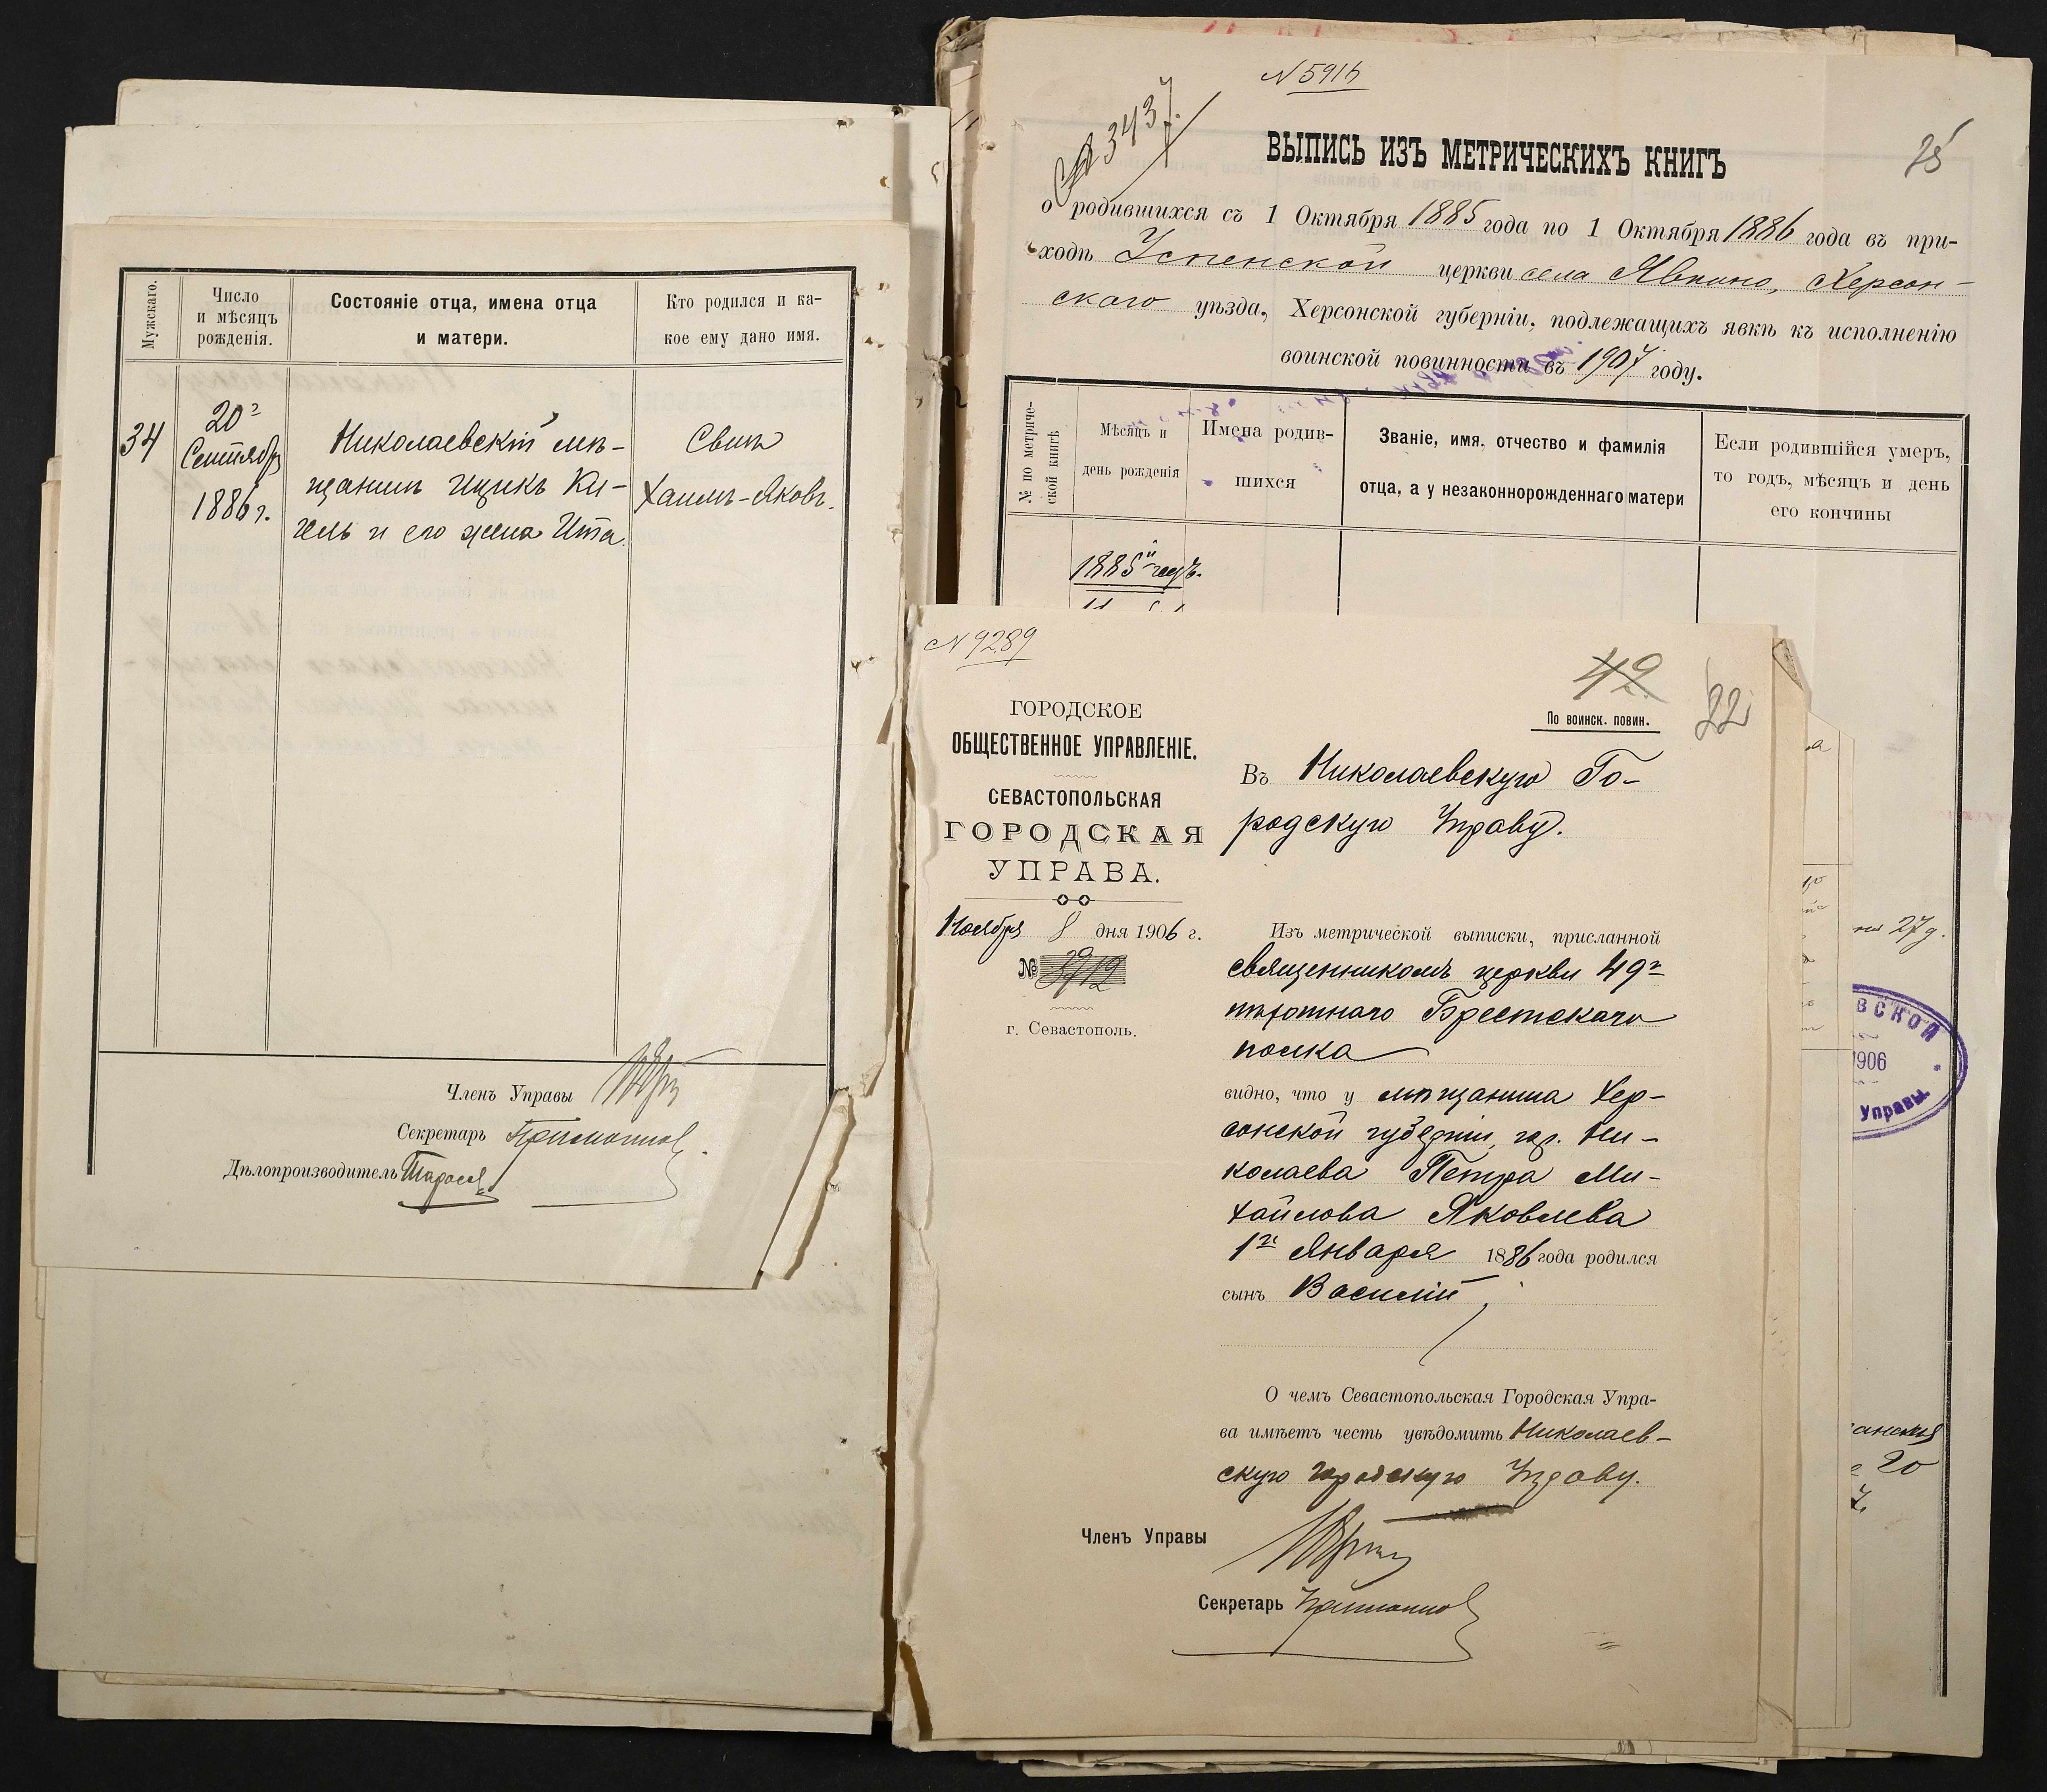 Мужскаго.
Число
и мѣсяцъ
рожденія.
Состояніе отца, имена отца
и матери.
Кто родился и ка-
кое ему дано имя.
34
20го
Сентября
1886 г.
Николаевскій мѣ-
щанинъ Ицикъ Ки-
гель и его жена Ита.
Сынъ
Хаимъ-Яковъ.
Членъ Управы
Секретарь
Дѣлопроизводитель
N 5916
3437.
25
ВЫПИСЬ ИЗЪ МЕТРИЧЕСКИХЪ КНИГЪ
о родившихся съ 1 Октября 1885 года по 1 Октября 1886 года въ при-
ходѣ Успенской церкви села Явкино, Херсон-
скаго уѣзда, Херсонской губерніи, подлежащихъ явкѣ къ исполненію
воинской повинности въ 1907 году.
№ по метриче-
ской книгѣ
Мѣсяцъ и
день рожденія
Имена родив-
шихся
Званіе, имя, отчество и фамилія
отца, а у незаконнорожденнаго матери
Если родившійся умеръ,
то годъ, мѣсяцъ и день
его кончины
1885й годъ.
N 9289
42
22
По воинск. повин.
ГОРОДСКОЕ
ОБЩЕСТВЕННОЕ УПРАВЛЕНІЕ.
СЕВАСТОПОЛЬСКАЯ
ГОРОДСКАЯ
УПРАВА.
Ноября 8 дня 1906 г.
№ 3712
г. Севастополь.
Въ Николаевскую Го-
родскую Управу.
Изъ метрической выписки, присланной
священникомъ церкви 49го
пѣхотнаго Брестскаго
полка
видно, что у мѣщанина Хер-
сонской губерніи, гор. Ни-
колаева Петра Ми-
хайлова Яковлева
1го Января 1886 года родился
сынъ Василій,
О чемъ Севастопольская Городская Упра-
ва имѣетъ честь увѣдомить Николаев-
скую Городскую Управу.
Членъ Управы
Секретарь
27 д.
ВСКОЙ
1906
Управы
20